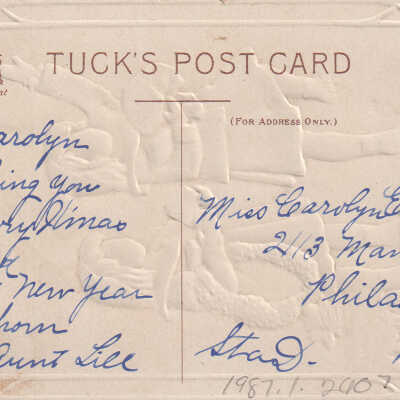 TUCK'S POST CARD
(FOR ADDRESS ONLY.)
arolyn
ing you
ry Xmas
New Year
from
Aunt Lill
Miss Carolyn E
2113 Man
Phila
Sta D.
1987.1.2407